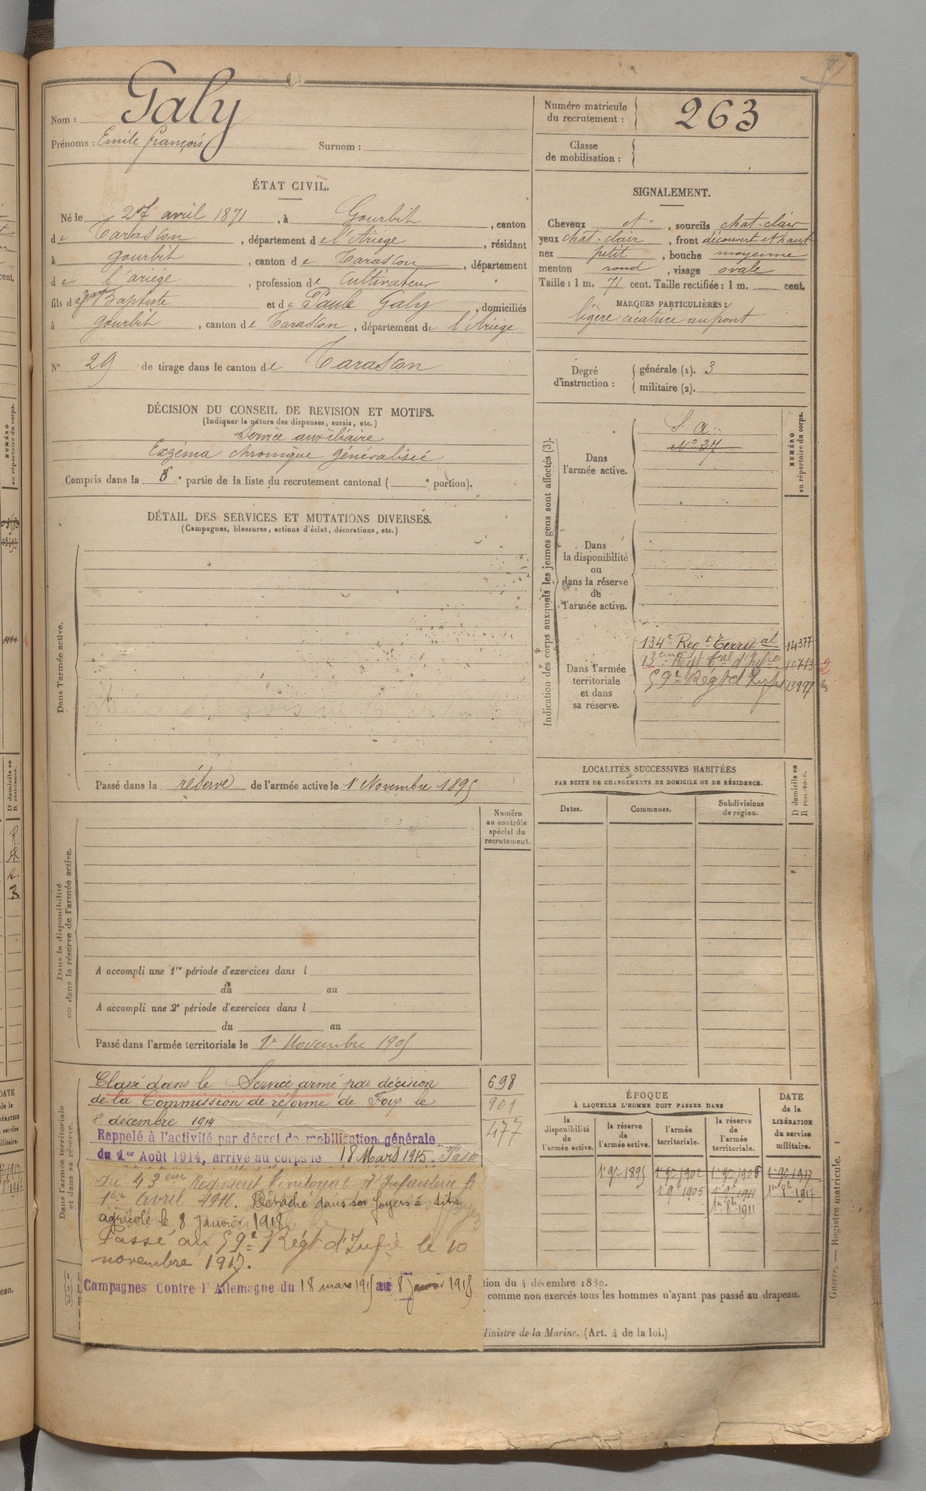 Nom : Galy
Prénoms : Emile françois Surnom :
Numéro matricule du recrutement : 263
Classe de mobilisation :
ÉTAT CIVIL.
Né le 27 avril 1871, à Gourbit, canton
de Tarascon, département de l'Ariège, résidant
à Gourbit, canton de Tarascon, département
de l'ariège, profession de Cultivateur
fils de Jean Baptiste et de Paule Galy, domiciliés
à Gourbit, canton de Tarascon, département de l'Ariège
N° 29 de tirage dans le canton de Tarascon
SIGNALEMENT.
Cheveux et, sourcils chat-clair
yeux chat-clair, front découvert et haut
nez petit, bouche moyenne
menton rond, visage ovale
Taille : 1 m. 71 cent. Taille rectifiée : 1 m. cent.
MARQUES PARTICULIÈRES :
légère cicatrice au front
Degré d'instruction : générale (1). 3
militaire (2).
DÉCISION DU CONSEIL DE REVISION ET MOTIFS.
(Indiquer la nature des dispenses, sursis, etc.)
Service auxiliaire
Exzéma chronique généralisée
Compris dans la 8e partie de la liste du recrutement cantonal ( e portion).
DÉTAIL DES SERVICES ET MUTATIONS DIVERSES.
(Campagnes, blessures, actions d'éclat, décorations, etc.)
Dans l'armée active.
Passé dans la réserve de l'armée active le 1er Novembre 1895
Indication des corps auxquels les jeunes gens sont affectés (3).
NUMÉRO au répertoire du corps.
Dans l'armée active.
S. a.
N° 27
Dans la disponibilité ou dans la réserve de l'armée active.
Dans l'armée territoriale et dans sa réserve.
134e Regt Territal 14377
59e Régt d'Infie 13997
LOCALITÉS SUCCESSIVES HABITÉES
PAR SUITE DE CHANGEMENTS DE DOMICILE OU DE RÉSIDENCE.
Dates. Communes. Subdivisions de région. D domicile ou R résidence.
Numéro au contrôle spécial du recrutement.
Dans la disponibilité ou dans la réserve de l'armée active.
A accompli une 1re période d'exercices dans l
du au
A accompli une 2e période d'exercices dans l
du au
Passé dans l'armée territoriale le 1er Novembre 1905
Dans l'armée territoriale et dans sa réserve.
Classé dans le Service armé par décision 698
de la Commission de réforme de Foix le 901
8 décembre 1914 477
Rappelé à l'activité par décret de mobilisation générale
du 1er Août 1914, arrivé au corps le 18 Mars 1915. Passé
au 43eme Régiment territorial d'Infanterie le
1er Avril 1916. Détaché dans ses foyers à titre
agricole le 8 Janvier 1918
Passé au 59e Régt d'Infie le 10
novembre 1917.
Campagnes Contre l'Allemagne du 18 mars 1915 au 8 janvier 1918
ÉPOQUE
À LAQUELLE L'HOMME DOIT PASSER DANS
la disponibilité de l'armée active. la réserve de l'armée active. l'armée territoriale. la réserve de l'armée territoriale.
DATE de la LIBÉRATION du service militaire.
1er 9bre 1895 1er 9bre 1902 1er 9bre 1908 1er 9bre 1917
1er 9bre 1905 1er 9bre 1911
1er 8bre 1911
tion du 4 décembre 1889.
comme non exercés tous les hommes n'ayant pas passé au drapeau.
Ministre de la Marine. (Art. 4 de la loi.)
Guerre. — Registre matricule. 1